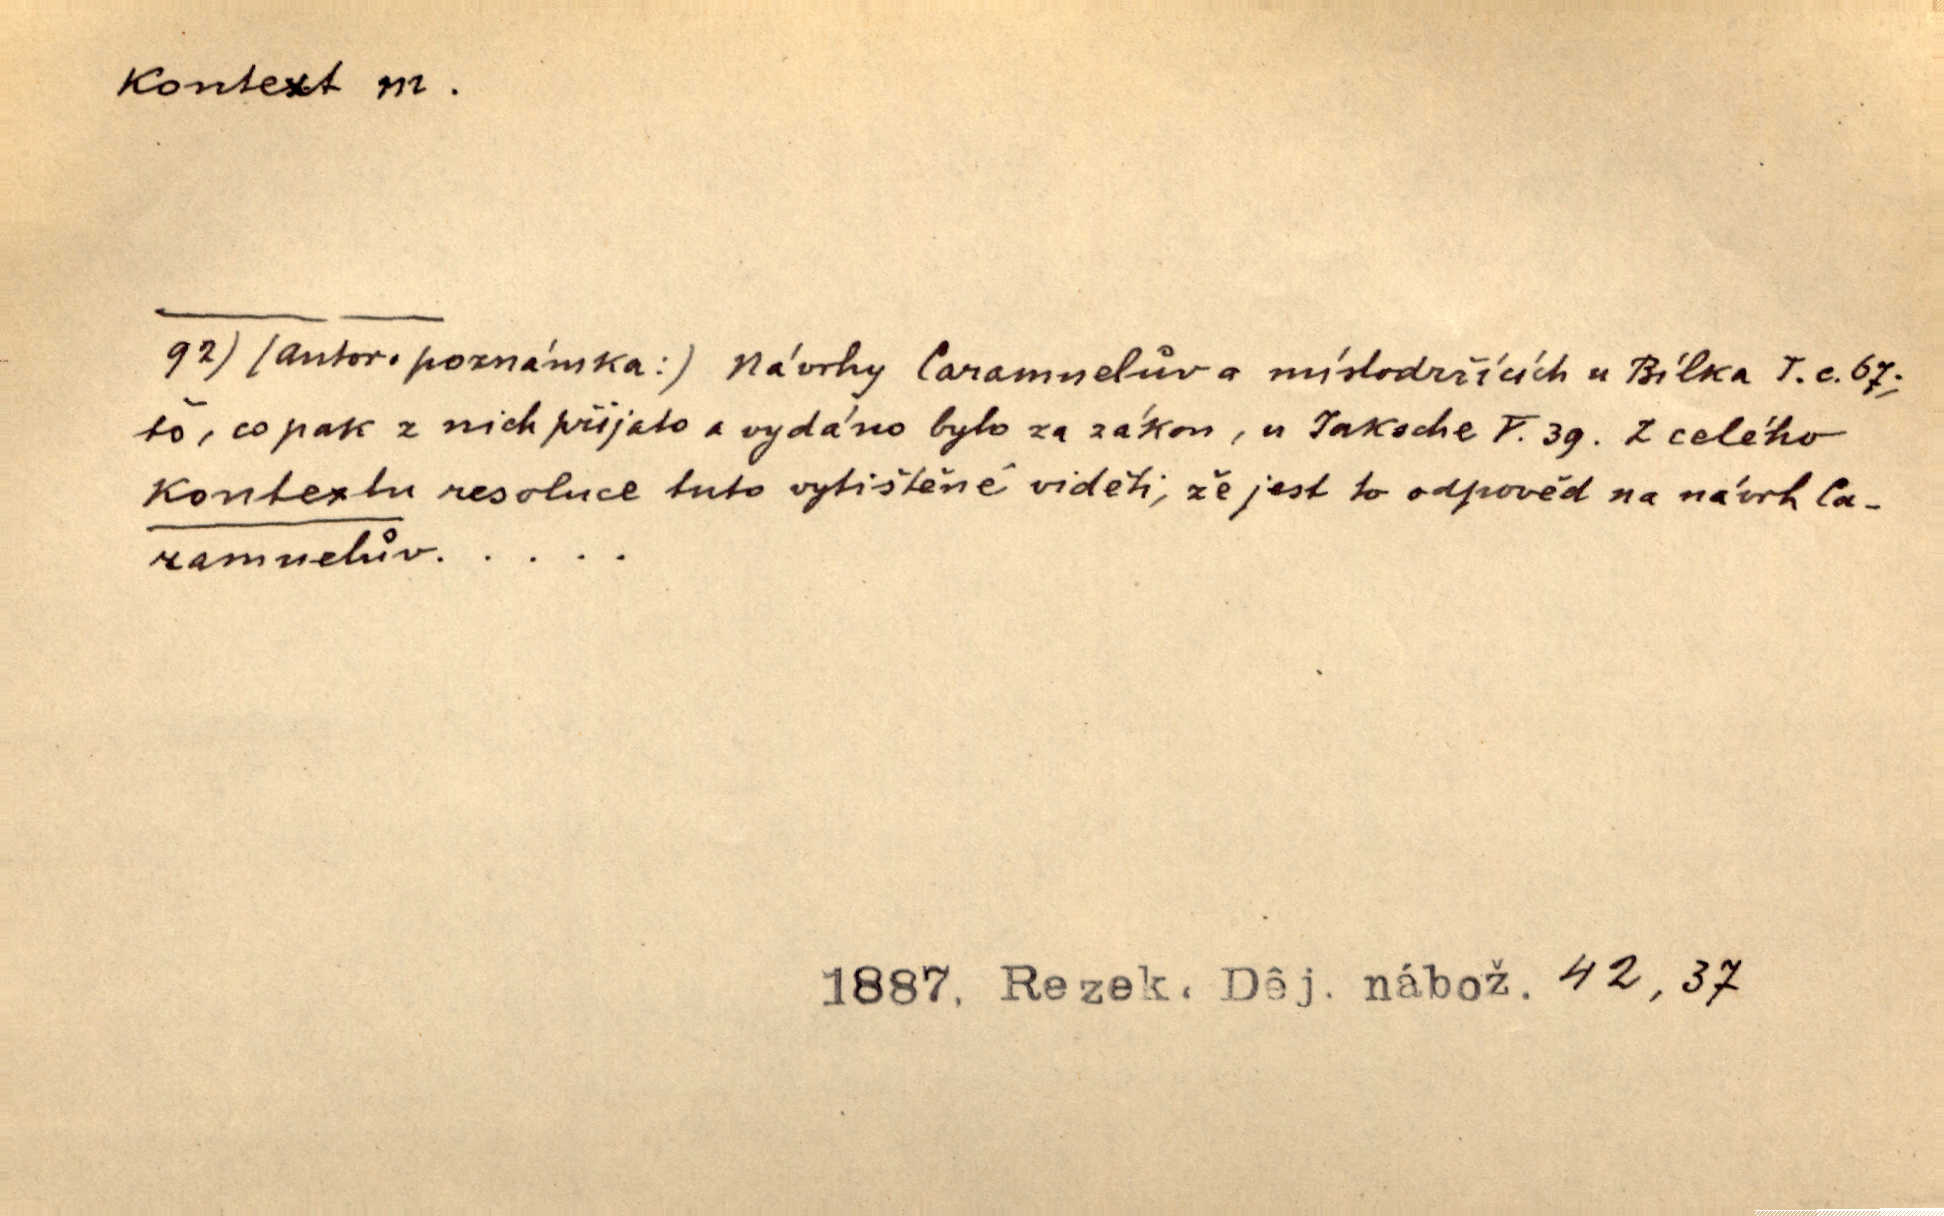 Kontext m.
92) (autor. poznámka:) Návrhy Caramuelův a místodržících u Bílka T. c. 67;
tò, co pak z nich přijato a vydáno bylo za zákon, u Jaksche V. 39. Z celého
kontextu resoluce tuto vytištěné viděti, že jest to odpověd na návrh Ca-
ramuelův. . . . .
1887. Rezek. Děj. nábož. 42, 37